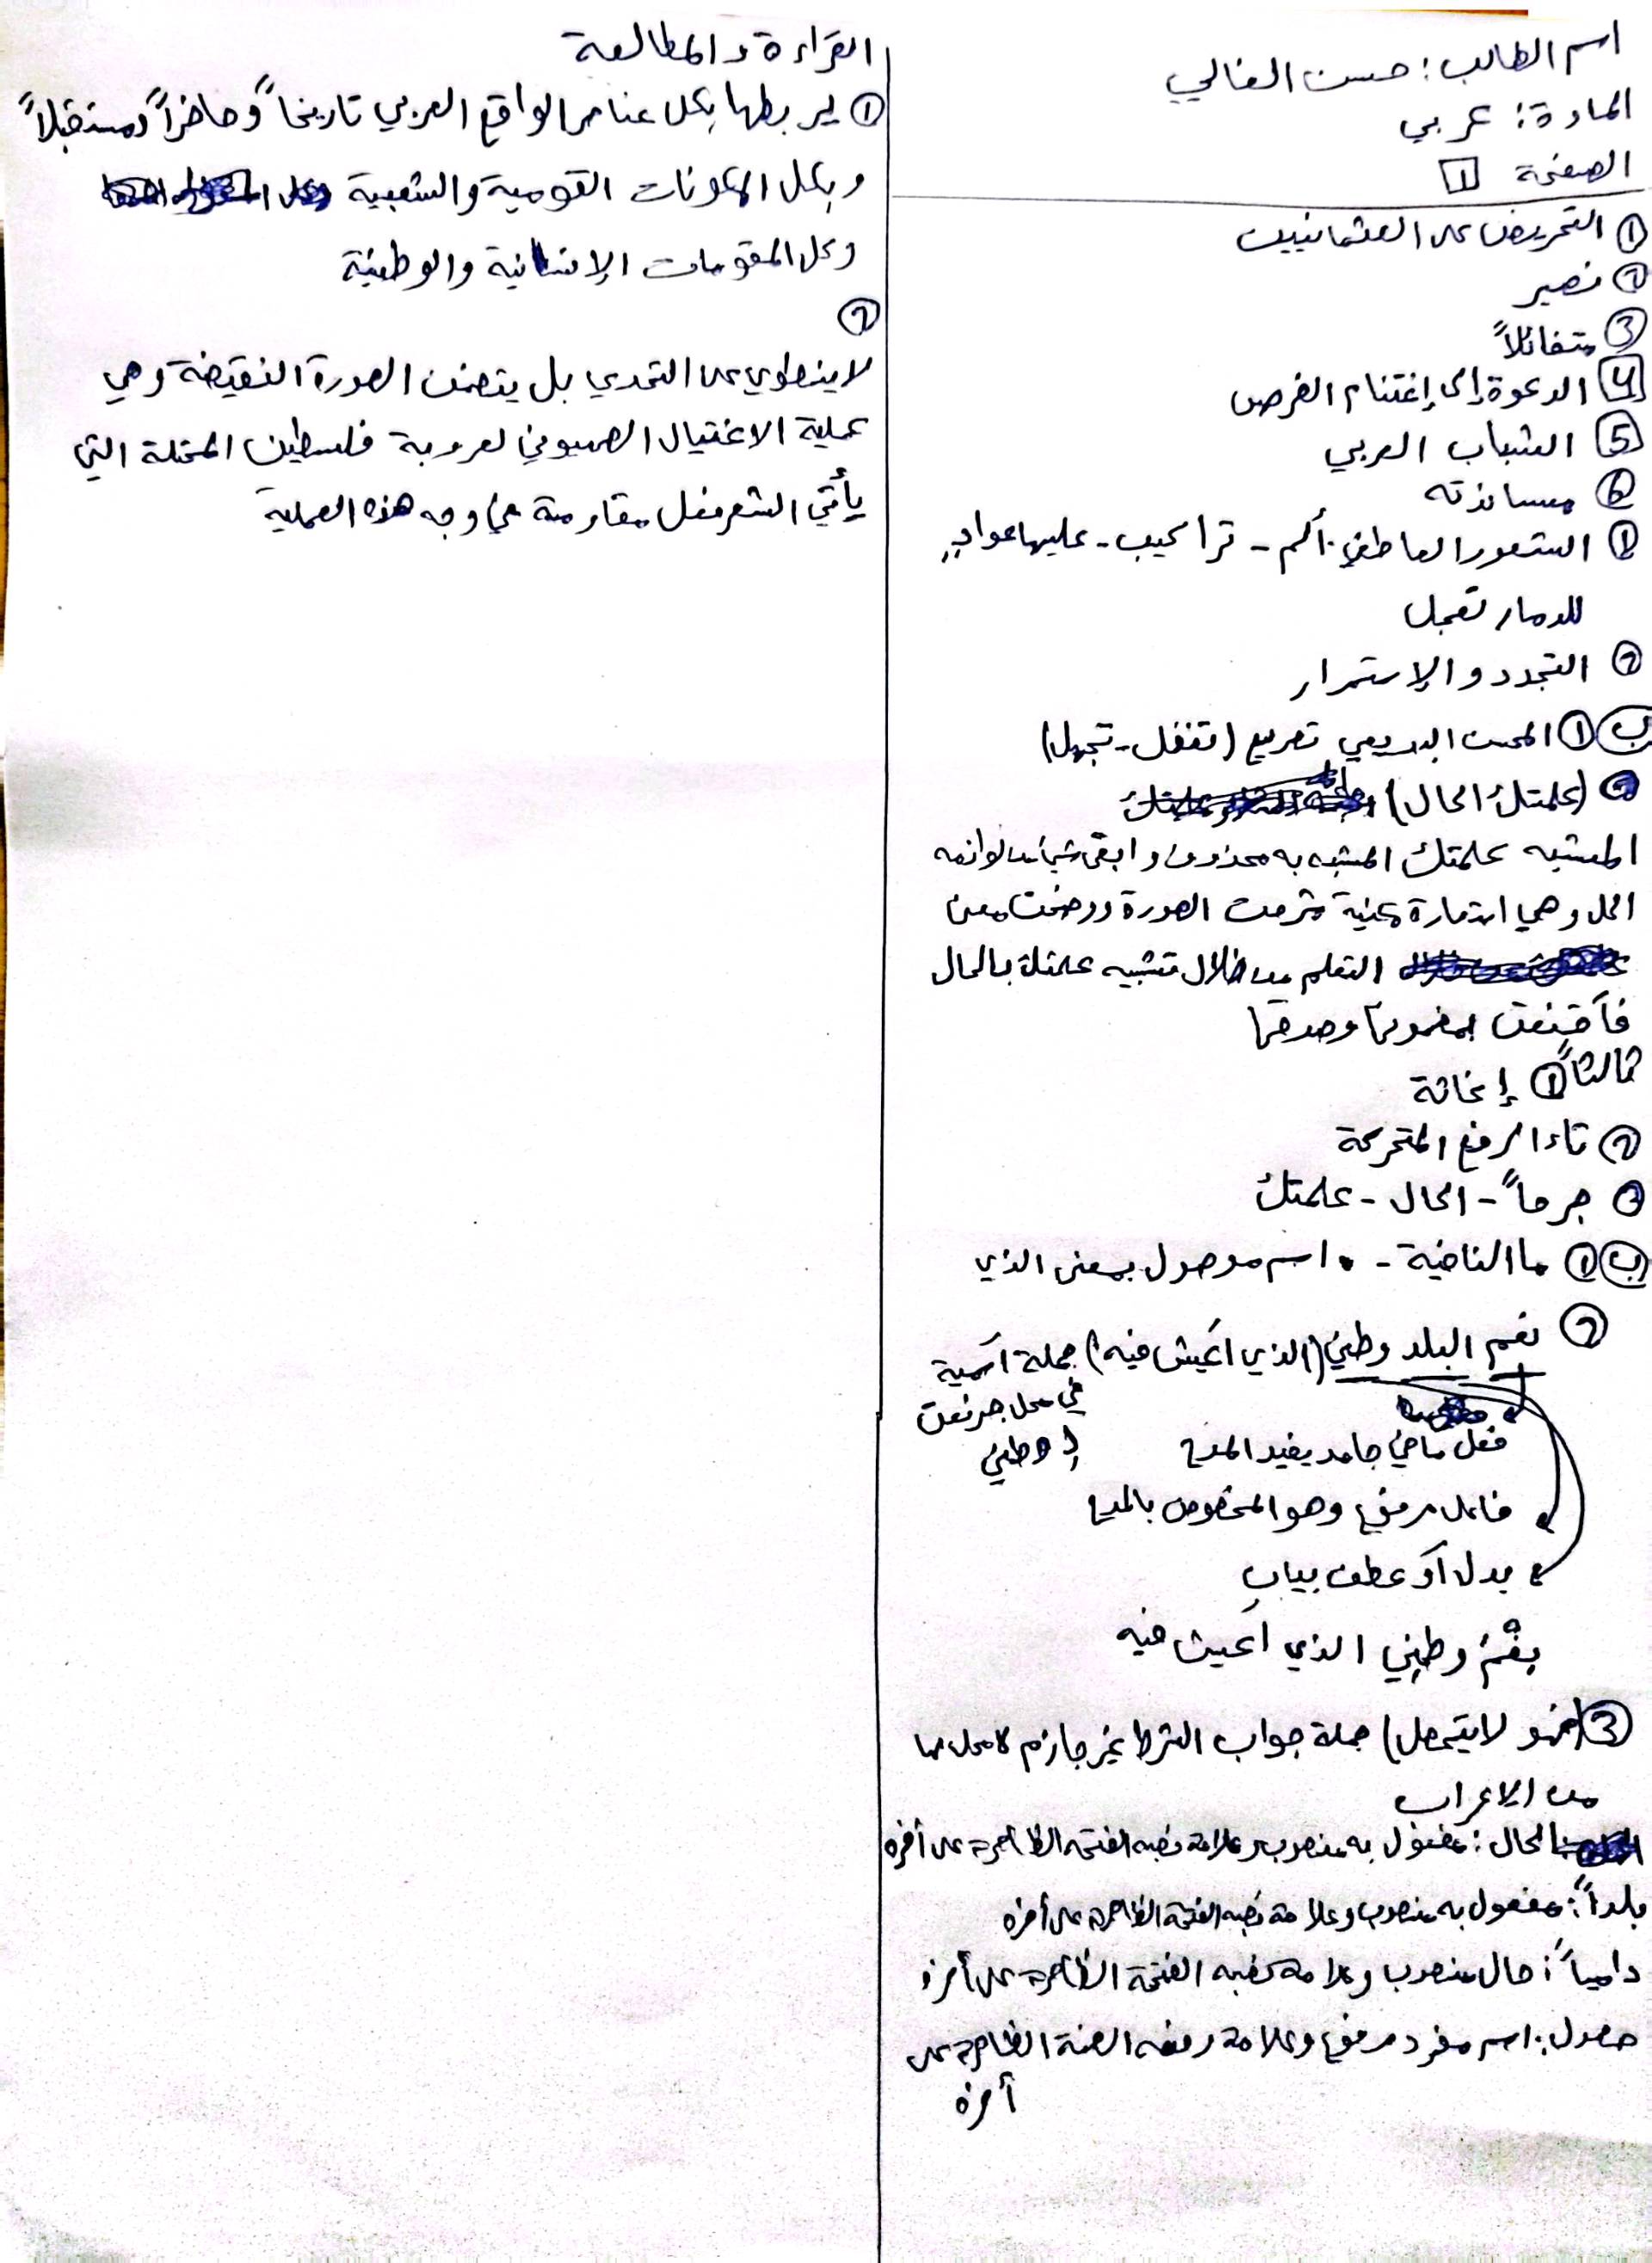 اسم الطالب: حسن الغالي
المادة: عربي
الصفحة 1
① التحريض على العثمانيين
② نصير
③ متفائلاً
4 الدعوة إلى إغتنام الفرص
5 الشباب العربي
⑥ مساندته
① الشعور العاطفي: ألم - تراكيب - عليها عوادٍ
للدمار تعجل
② التجدد والإستمرار
ب ① المحسن البديعي تصريع (تغفل - تجهل)
② (علمتك الحال)
المشبه علمتك المشبه به محذوف وابقى شيئاً من لوازمه
الحال وهي استعارة مكنية شرحت الصورة ووضحت معنى
التعلم من خلال تشبيه علمتك بالحال
فأقنعت بمضمونها وصدقها
ثالثاً ① إغاثة
② تاء الرفع المتحركة
③ جرماً - الحال - علمتك
ب ① ما النافية - اسم موصول بمعنى الذي
② نعم البلد وطني (الذي أعيش فيه) جملة أسمية
في محل جر نعت
لِ وطني
فعل ماضي جامد يفيد المدح
فاعل مرفوع وهو المخصوص بالمدح
بدل أو عطف بيان
نِعْمَ وطني الذي أعيش فيه
③ (فهو لا يتمهل) جملة جواب الشرط غير جازم لا محل لها
من الاعراب
الحال: مفعول به منصوب وعلامة نصبه الفتحة الظاهرة على أخره
بلداً: مفعول به منصوب وعلامة نصبه الفتحة الظاهرة على أخره
دامياً: حال منصوب وعلامة نصبه الفتحة الظاهرة على أخره
حصول: اسم مفرد مرفوع وعلامة رفعه الضمة الظاهرة على
أخره
القراءة والمطالعة
① ليربطها بكل عناصر الواقع العربي تاريخاً وحاضراً ومستقبلاً
وبكل المكونات القومية والشعبية
وكل المقومات الإنسانية والوطنية
②
لا ينطوي على التحدي بل يتضمن الصورة النقيضة وهي
عملية الاغتيال الصهيوني لعروبة فلسطين المحتلة التي
يأتي الشعر فعل مقاومة في وجه هذه العملية